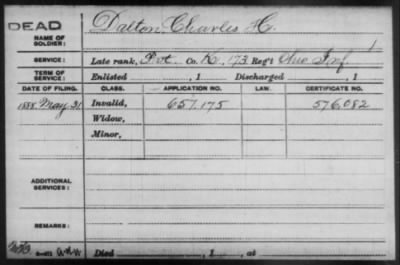 DEAD
NAME OF SOLDIER:
Dalton, Charles H.
SERVICE:
Late rank, Pvt. Co. K, 173 Reg't Ohio Inf.
TERM OF SERVICE:
Enlisted , 1 Discharged , 1
DATE OF FILING. CLASS. APPLICATION NO. LAW. CERTIFICATE NO.
1888, May 31 Invalid, 657.175 576.082
Widow,
Minor,
ADDITIONAL SERVICES:
REMARKS:
Died , 1 , at